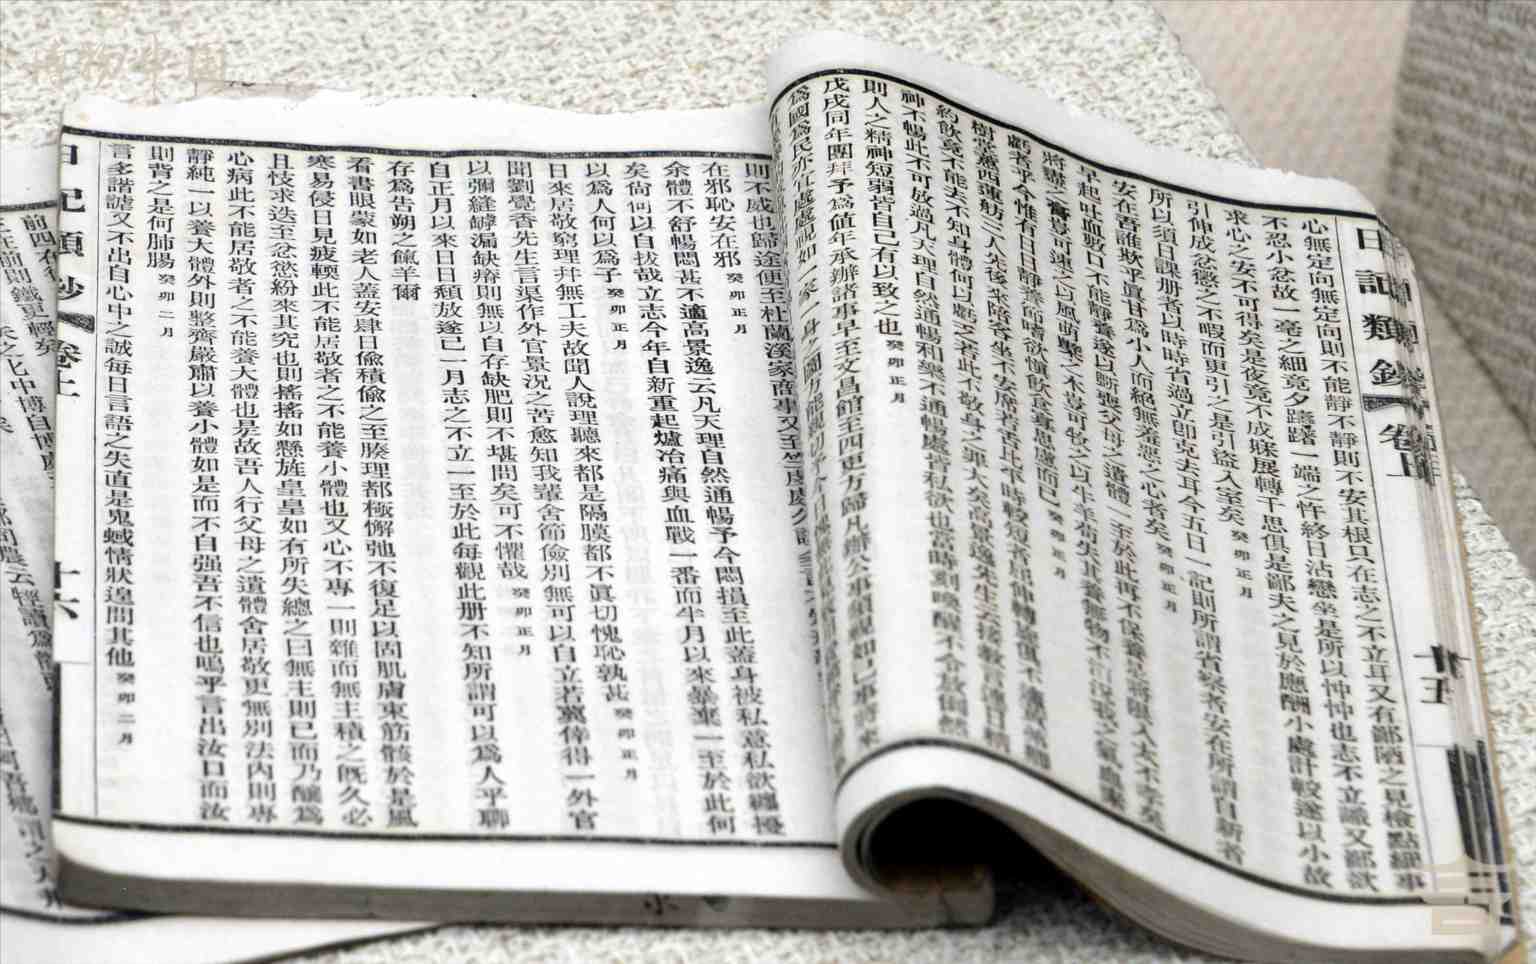 日記類鈔 卷上
十五
心無定向無定向則不能靜不靜則不安其根只在志之不立耳又有鄙陋之見檢點細事
不忍小忿故一毫之細竟夕躊躇一端之忤終日沾戀坐是所以忡忡也志不立識又鄙欲
求心之安不可得矣是夜竟不成寐展轉千思俱是鄙夫之見於應酬小處計較遂以小故
引伸成忿懲之不暇而更引之是引盜入室矣 癸卯正月
所以須日課册者以時時省過立卽克去耳今五日一記則所謂省察者安在所謂自新者
安在吾誰欺乎眞甘爲小人而絕無羞惡之心者矣 癸卯正月
早起吐血數口不能靜養遂以斲喪父母之遺體一至於此再不保養是將限入大不孝矣
將盡之膏豈可速之以風萌蘖之木豈可牧之以牛羊苟失其養無物不消況我之氣血素
虧者乎今惟有日日靜養節嗜欲愼飲食寡思慮而已 癸卯正月
樹堂蕙西蓮舫三人先後來陪客坐不安席若舌比平時較短者屈伸轉旋俱不
約飲竟不能去不知身體何以虧乏若此不敬身之罪大矣高景逸先生云接教言連日精
神不暢此不可放過凡天理自然通暢和樂不通暢處皆私欲也當時刻喚醒不令放倒然
則人之精神短弱皆自己有以致之也 癸卯正月
戊戌同年團拜予爲值年承辦諸事早至文昌館至四更方歸凡辦公事須視如己事將來
爲國爲民亦宜處處視如一家一身之圖方能親切
則不威也歸途便至杜蘭溪家商事又至竺虔處久談
在邪恥安在邪 癸卯正月
余體不舒暢悶甚不適高景逸云凡天理自然通暢予今悶損至此蓋身被私意私欲纏擾
矣尙何以自拔哉立志今年自新重起爐冶痛與血戰一番而半月以來暴棄一至於此何
以爲人何以爲子 癸卯正月
日來居敬窮理幷無工夫故聞人說理聽來都是隔膜都不眞切愧恥孰甚 癸卯正月
聞劉覺香先生言渠作外官景況之苦愈知我輩舍節儉別無可以自立若冀倖得一外官
以彌縫罅漏缺瘠則無以自存缺肥則不堪問矣可不懼哉 癸卯正月
自正月以來日日頹放遂已一月志之不立一至於此每觀此册不知所謂可以爲人乎聊
存爲告朔之餼羊爾
看書眼蒙如老人蓋安肆日偸積偸之至腠理都極懈弛不復足以固肌膚束筋骸於是風
寒易侵日見疲輭此不能居敬者之不能養小體也又心不專一則雜而無主積之旣久必
且忮求迭至忿慾紛來其究也則搖搖如懸旌皇皇如有所失總之曰無主則已而乃釀爲
心病此不能居敬者之不能養大體也是故吾人行父母之遺體舍居敬更無別法內則專
靜純一以養大體外則整齊嚴肅以養小體如是而不自强吾不信也嗚乎言出汝口而汝
則背之是何肺腸 癸卯二月
言多諧謔又不出自心中之誠每日言語之失直是鬼蜮情狀遑問其他 癸卯二月
日記類鈔 卷上
十六